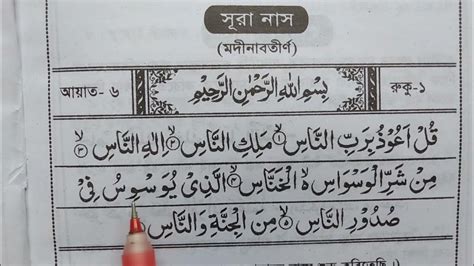 সূরা নাস
(মদীনাবতীর্ণ)
আয়াত- ৬
بِسْمِ اللهِ الرَّحْمٰنِ الرَّحِيْمِ
রুকু-১
قُلْ اَعُوْذُ بِرَبِّ النَّاسِ ۙ﴿۱﴾ مَلِكِ النَّاسِ ۙ﴿۲﴾ اِلٰهِ النَّاسِ ۙ﴿۳﴾
مِنْ شَرِّ الْوَسْوَاسِ ۙ۬ الْخَنَّاسِ ۙ﴿۴﴾ الَّذِيْ يُوَسْوِسُ فِيْ
صُدُوْرِ النَّاسِ ۙ﴿۵﴾ مِنَ الْجِنَّةِ وَالنَّاسِ